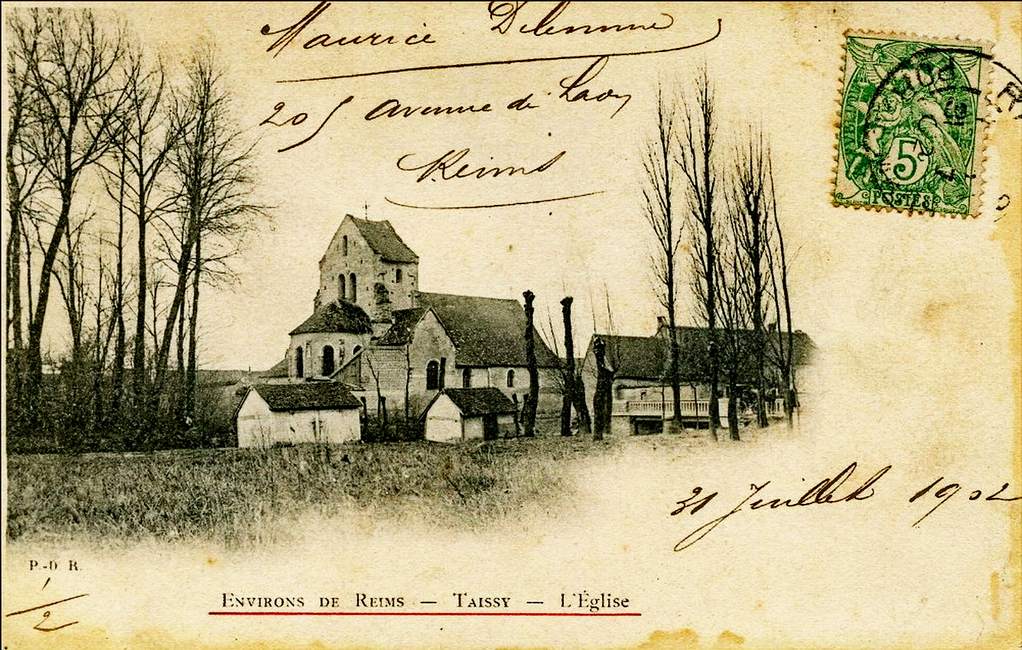 Maurice Delemme
205 avenue de Laon
Reims
5
POSTES
31 Juillet 1902
P.-D. R.
1/2
ENVIRONS DE REIMS — TAISSY — L'Église